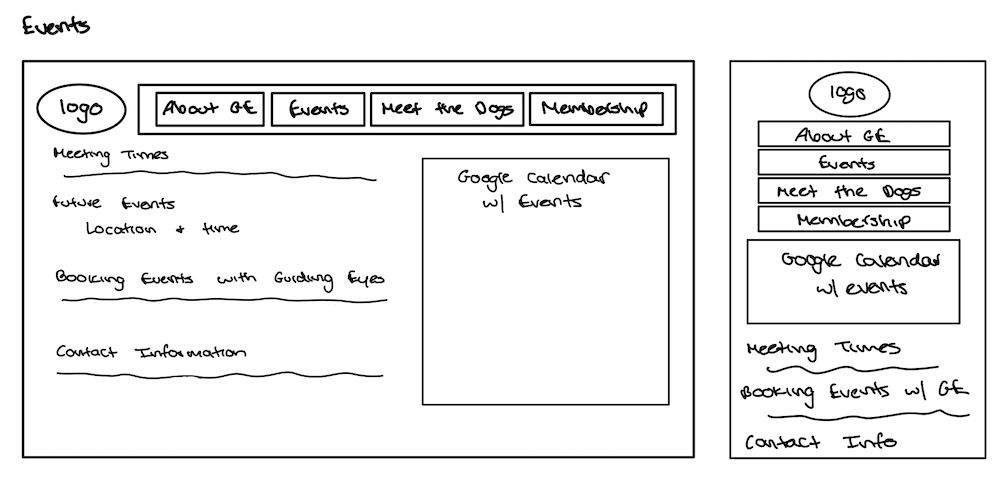 Events
logo
About GE
Events
Meet the Dogs
Membership
Meeting Times
Future Events
Location + time
Booking Events with Guiding Eyes
Contact Information
Google Calendar
w/ Events
logo
About GE
Events
Meet the Dogs
Membership
Google Calendar
w/ events
Meeting Times
Booking Events w/ GE
Contact Info